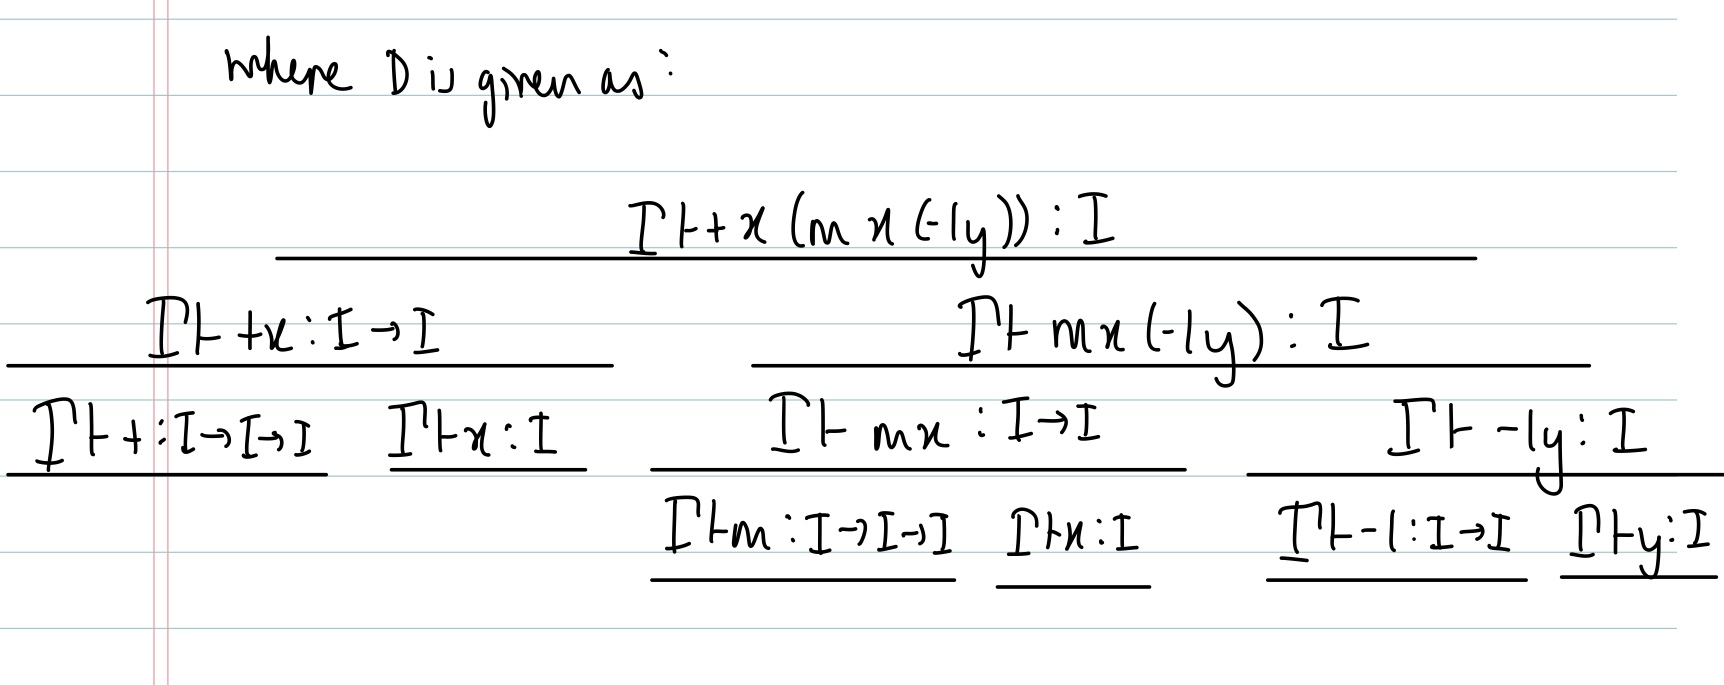 where D is given as:
Γ ⊢ + x (m x (-1 y)) : I
Γ ⊢ + x : I → I Γ ⊢ m x (-1 y) : I
Γ ⊢ + : I → I → I Γ ⊢ x : I Γ ⊢ m x : I → I Γ ⊢ -1 y : I
Γ ⊢ m : I → I → I Γ ⊢ x : I Γ ⊢ -1 : I → I Γ ⊢ y : I